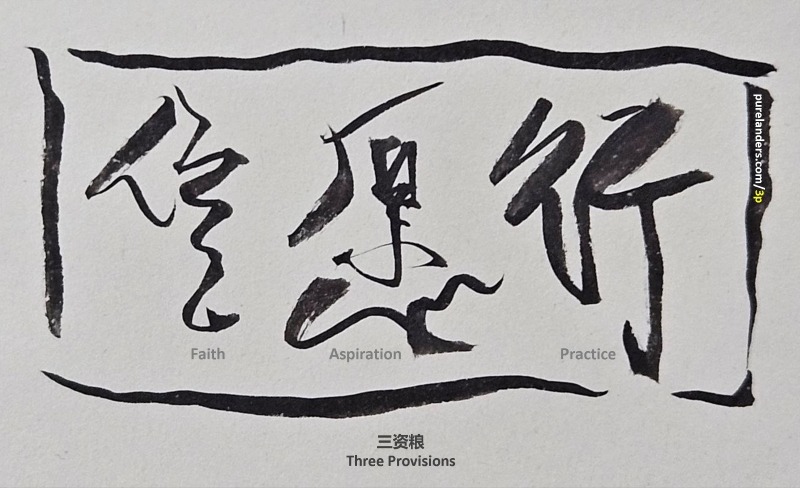 信愿行
Faith Aspiration Practice
三资粮
Three Provisions
purelanders.com/3p